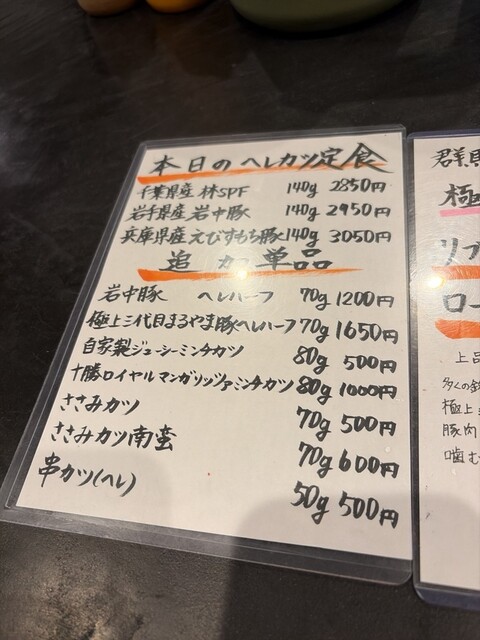 本日のヘレカツ定食
千葉県産 林SPF 140g 2850円
岩手県産 岩中豚 140g 2950円
兵庫県産えびすもち豚 140g 3050円
追加単品
岩中豚 ヘレハーフ 70g 1200円
極上三代目まるやま豚ヘレハーフ 70g 1650円
自家製ジューシーミンチカツ 80g 500円
十勝ロイヤルマンガリッツァミンチカツ 80g 1000円
ささみカツ 70g 500円
ささみカツ南蛮 70g 600円
串カツ(ヘレ) 50g 500円
群馬
極
リブ
ロー
上品
多くの
極上
豚肉
噛む